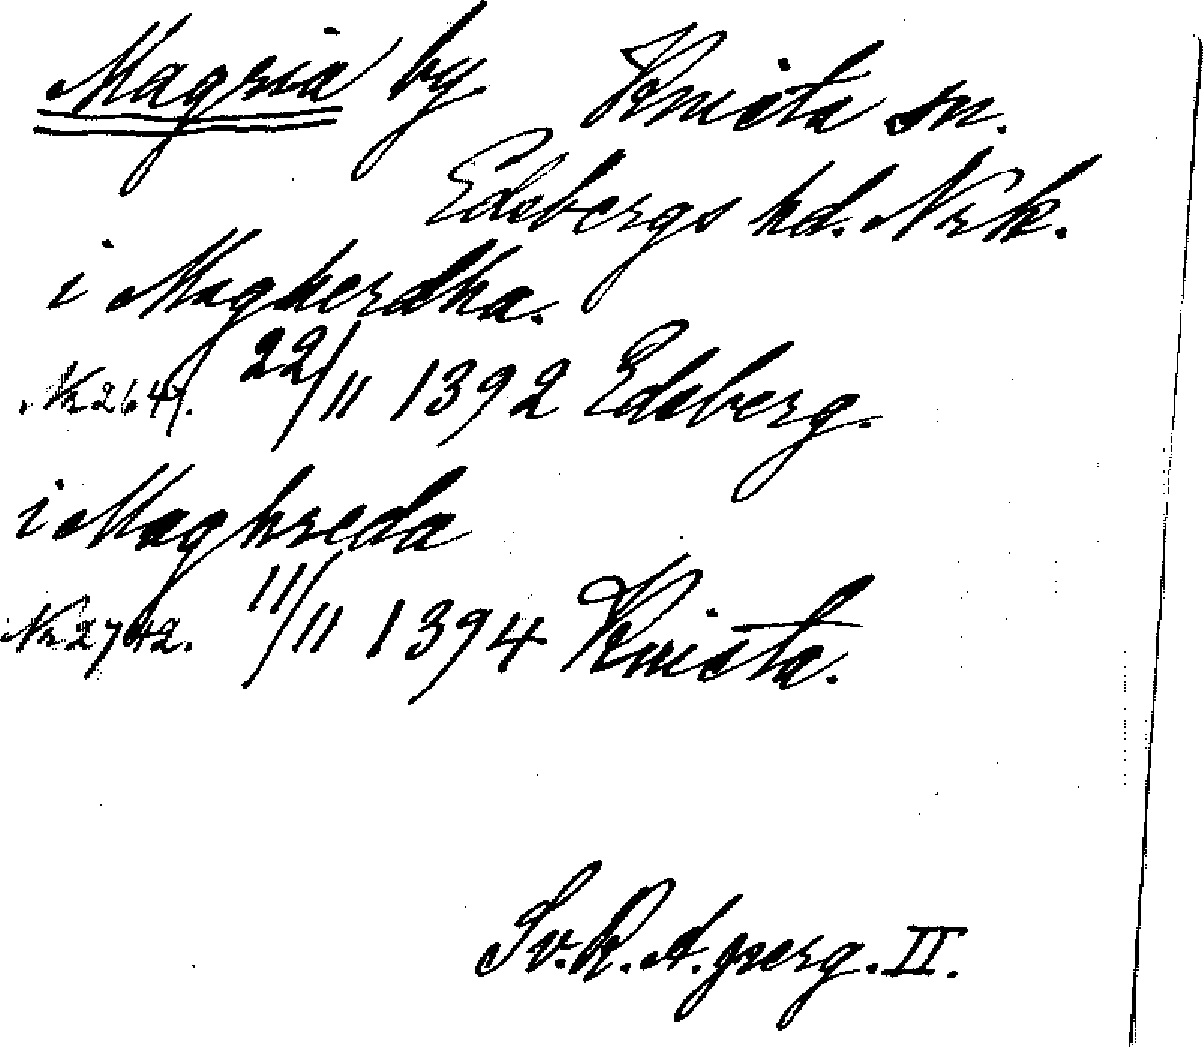 Magria by Knista sn.
Edsbergs hd. Nrk.
i Magherdha.
Nr 2641. 22/11 1392 Edsberg.
i Maghreda
Nr 2742. 11/11 1394 Knista.
Sv. R. A. perg. II.